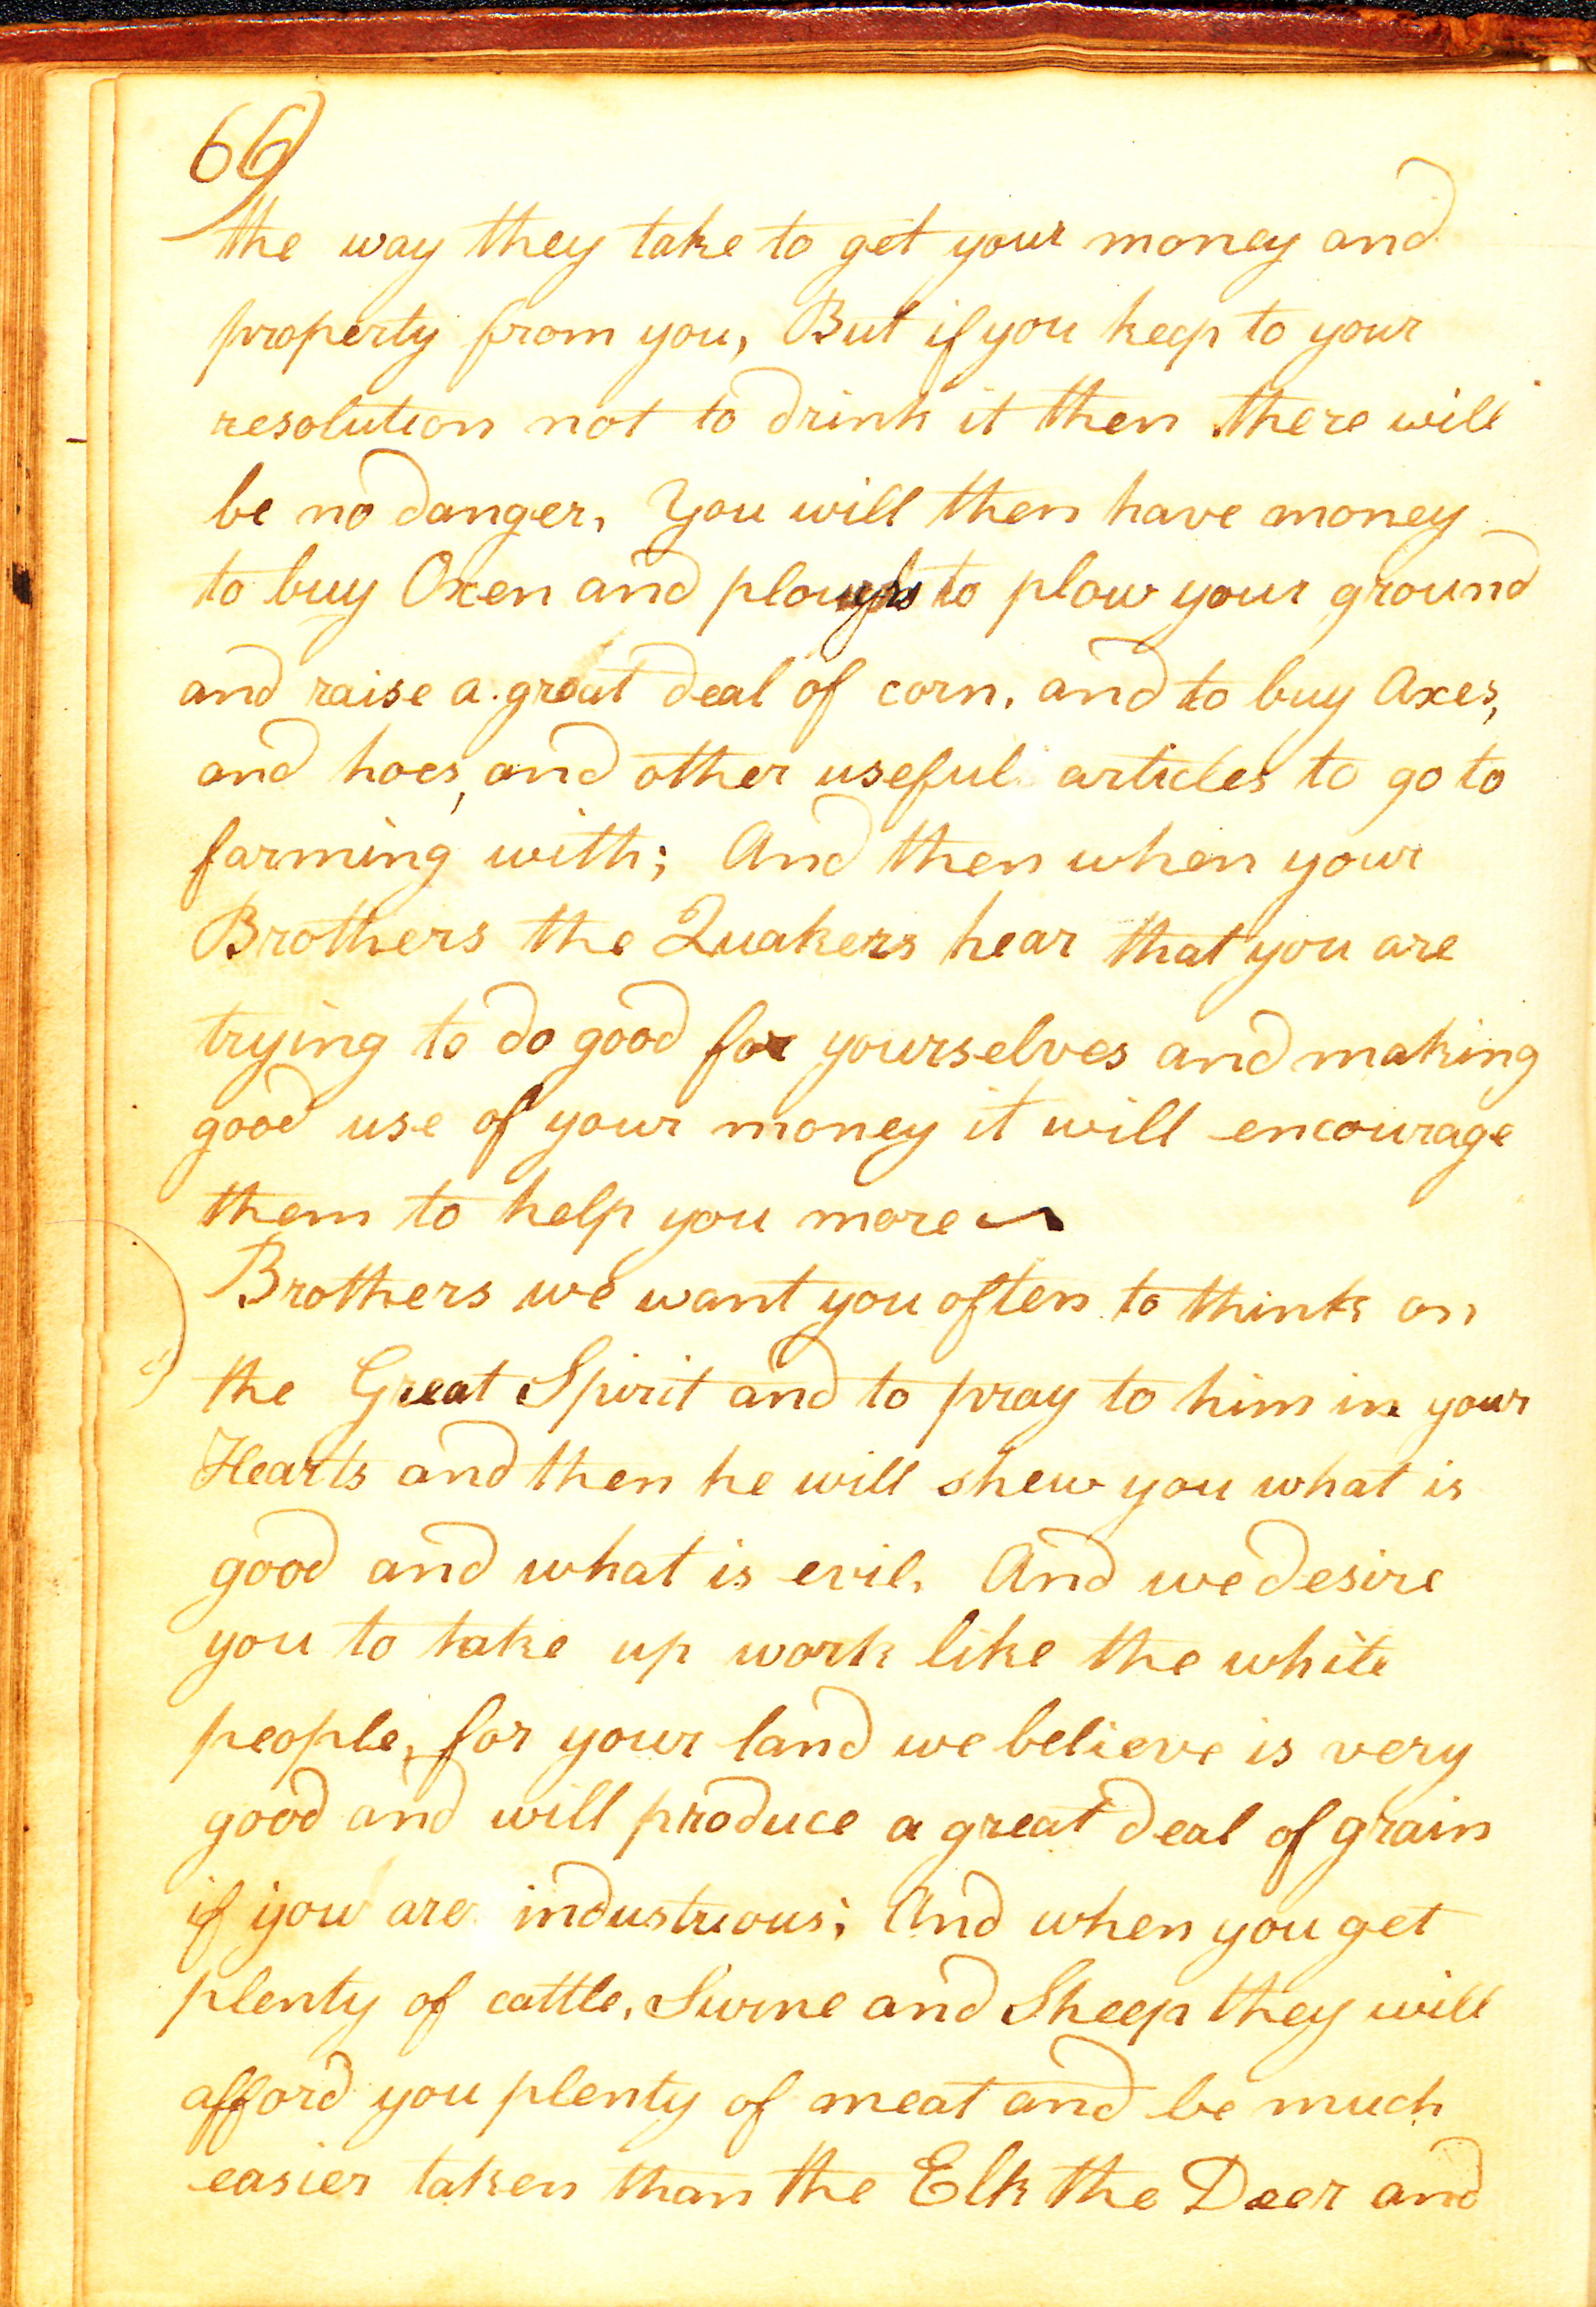 66)
the way they take to get your money and
property from you, But if you keep to your
resolution not to drink it then there will
be no danger, You will then have money
to buy Oxen and ploughs to plow your ground
and raise a great deal of corn, and to buy Axes,
and hoes, and other useful articles to go to
farming with; And then when your
Brothers the Quakers hear that you are
trying to do good for yourselves and making
good use of your money it will encourage
them to help you more
Brothers we want you often to think on
the Great Spirit and to pray to him in your
Hearts and then he will shew you what is
good and what is evil. And we desire
you to take up work like the white
people, for your land we believe is very
good and will produce a great deal of grain
if you are industrious; And when you get
plenty of cattle, Swine and Sheep they will
afford you plenty of meat and be much
easier taken than the Elk the Deer and